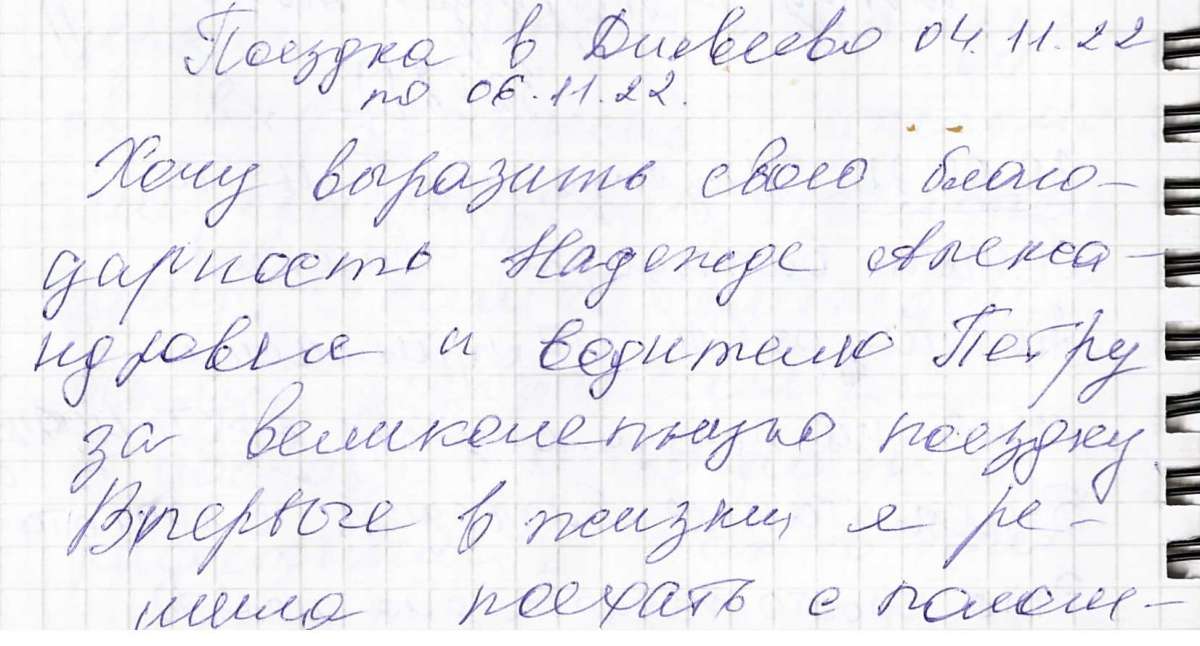 Поездка в Дивеево 04.11.22
по 06.11.22.
Хочу выразить свою благо-
дарность Надежде Алекса-
ндровне и водителю Петру
за великолепную поездку
Впервые в жизни я ре-
шила поехать с палом-